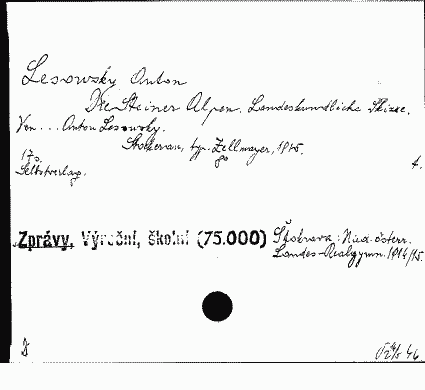 Lesowsky Anton
Die Steiner Alpen. Landeskundliche Skizze.
Von ... Anton Lesowsky.
Stockerau, typ. Zellmayer, 1915.
17 s. 8° 4.
Selbstverlag.
Zprávy, Výroční, školní (75.000) Stokrava: Nied. österr.
Landes-Realgymn. 1914/15.